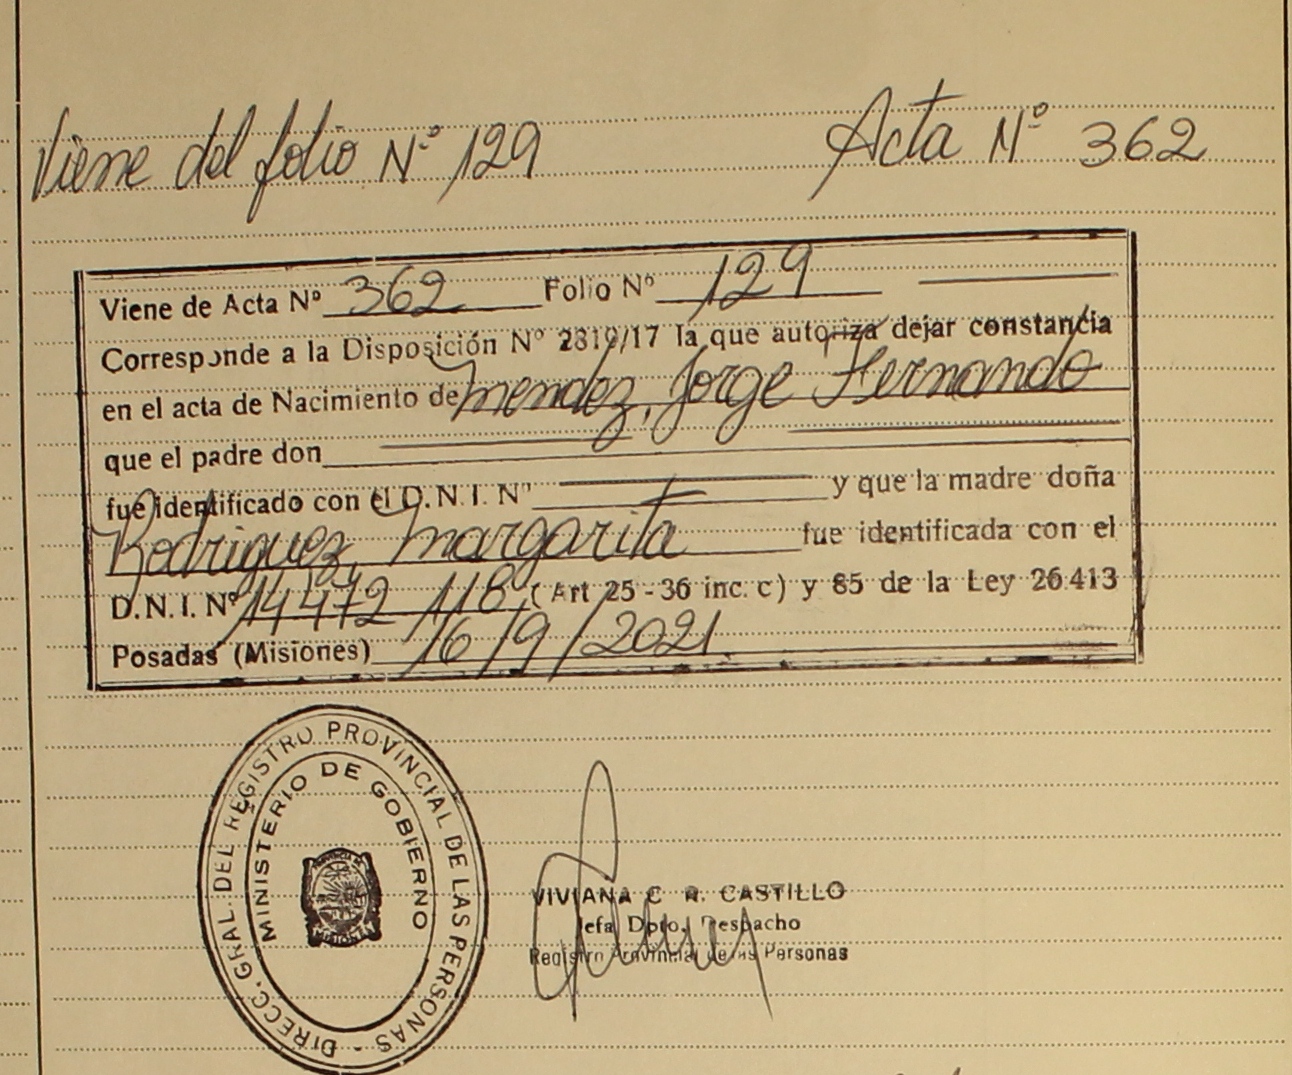 Viene del folio Nº 129 Acta Nº 362
Viene de Acta Nº 362 Folio Nº 129
Corresponde a la Disposición Nº 2819/17 la que autoriza dejar constancia
en el acta de Nacimiento de Mendez, Jorge Hernando
que el padre don
fue identificado con el D.N.I. Nº y que la madre doña
Rodriguez, Margarita fue identificada con el
D.N.I. Nº 14 472 118, (Art 25 - 36 inc. c) y 85 de la Ley 26.413
Posadas (Misiones) 16/9/2021.
DIRECC. GRAL. DEL REGISTRO PROVINCIAL DE LAS PERSONAS -
MINISTERIO DE GOBIERNO
MISIONES
VIVIANA C R. CASTILLO
Jefa Dpto. Despacho
Registro Provincial de las Personas